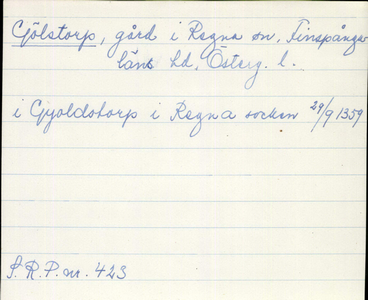 Gölstorp, gård i Regna sn, Finspånga
läns hd, Österg. l.
i Gyoldotorp i Regna socken 29/9 1359
S.R.P. nr. 423